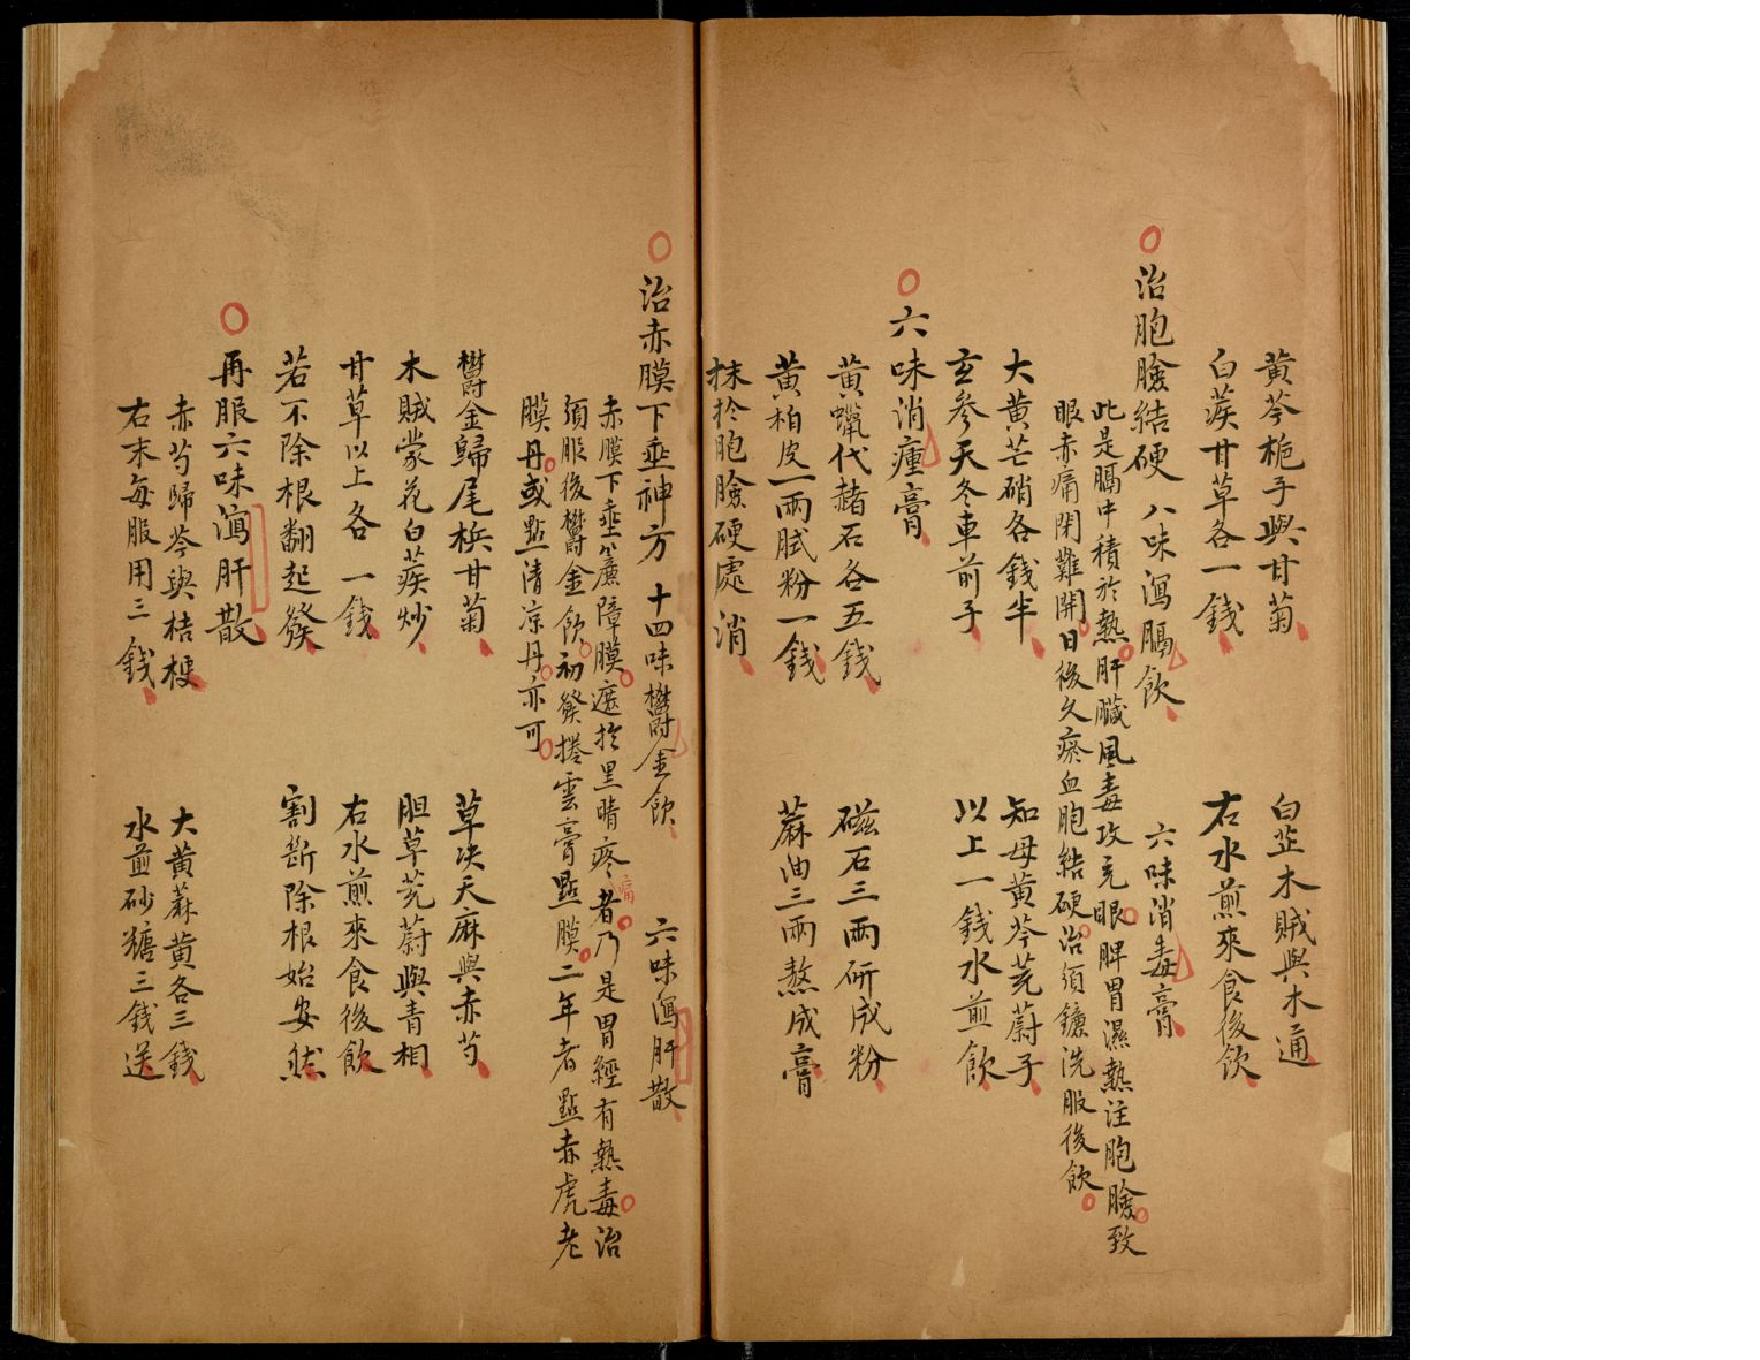 黃芩梔子與甘菊　白芷木賊與木通
白蒺甘草各一錢　右水煎來食後飲
治胞瞼結硬　八味瀉膈飲　六味消毒膏
此是膈中積於熱肝臟風毒攻充眼脾胃濕熱注胞瞼致
眼赤痛閉難開日後久瘀血胞結硬治須鐮洗服後飲
大黃芒硝各錢半　知母黃芩茺蔚子
玄參天冬車前子　以上一錢水煎飲
六味消瘇膏
黃蠟代赭石各五錢　磁石三兩研成粉
黃柏皮一兩膩粉一錢　蔴油三兩熬成膏
抹於胞瞼硬處消
治赤膜下垂神方　十四味欝金飲　六味瀉肝散
赤膜下垂簾障膜遮於黑睛疼痛者乃是胃經有熱毒治
須服後欝金飲初發捲雲膏點膜二年者點赤虎老
膜丹或點清涼丹亦可
欝金歸尾梹甘菊　草決天麻與赤芍
木賊蒙花白蒺炒　胆草茺蔚與青相
甘草以上各一錢　右水煎來食後飲
若不除根翻起發　割斷除根始安然
再服六味瀉肝散
赤芍歸芩與桔梗　大黃蔴黃各三錢
右末每服用三錢　水煎砂糖三錢送